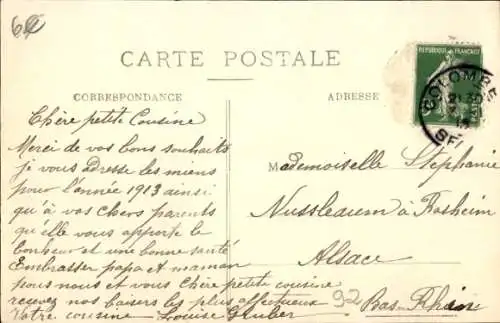 6
CARTE POSTALE
CORRESPONDANCE
ADRESSE
REPUBLIQUE FRANÇAISE
COLOMBES
SEINE
Chère petite Cousine
Merci de vos bons souhaits
je vous adresse les miens
pour l'année 1913 ainsi
qu'à vos chers parents
qu'elle vous apporte le
bonheur et une bonne santé
Embrasser papa et maman
pour nous et vous chère petite cousine
recevez nos baisers les plus affectueux
Votre cousine Louise Gruber
Mademoiselle Stephanie
Nussleaum à Rosheim
Alsace
92
Bas-Rhin